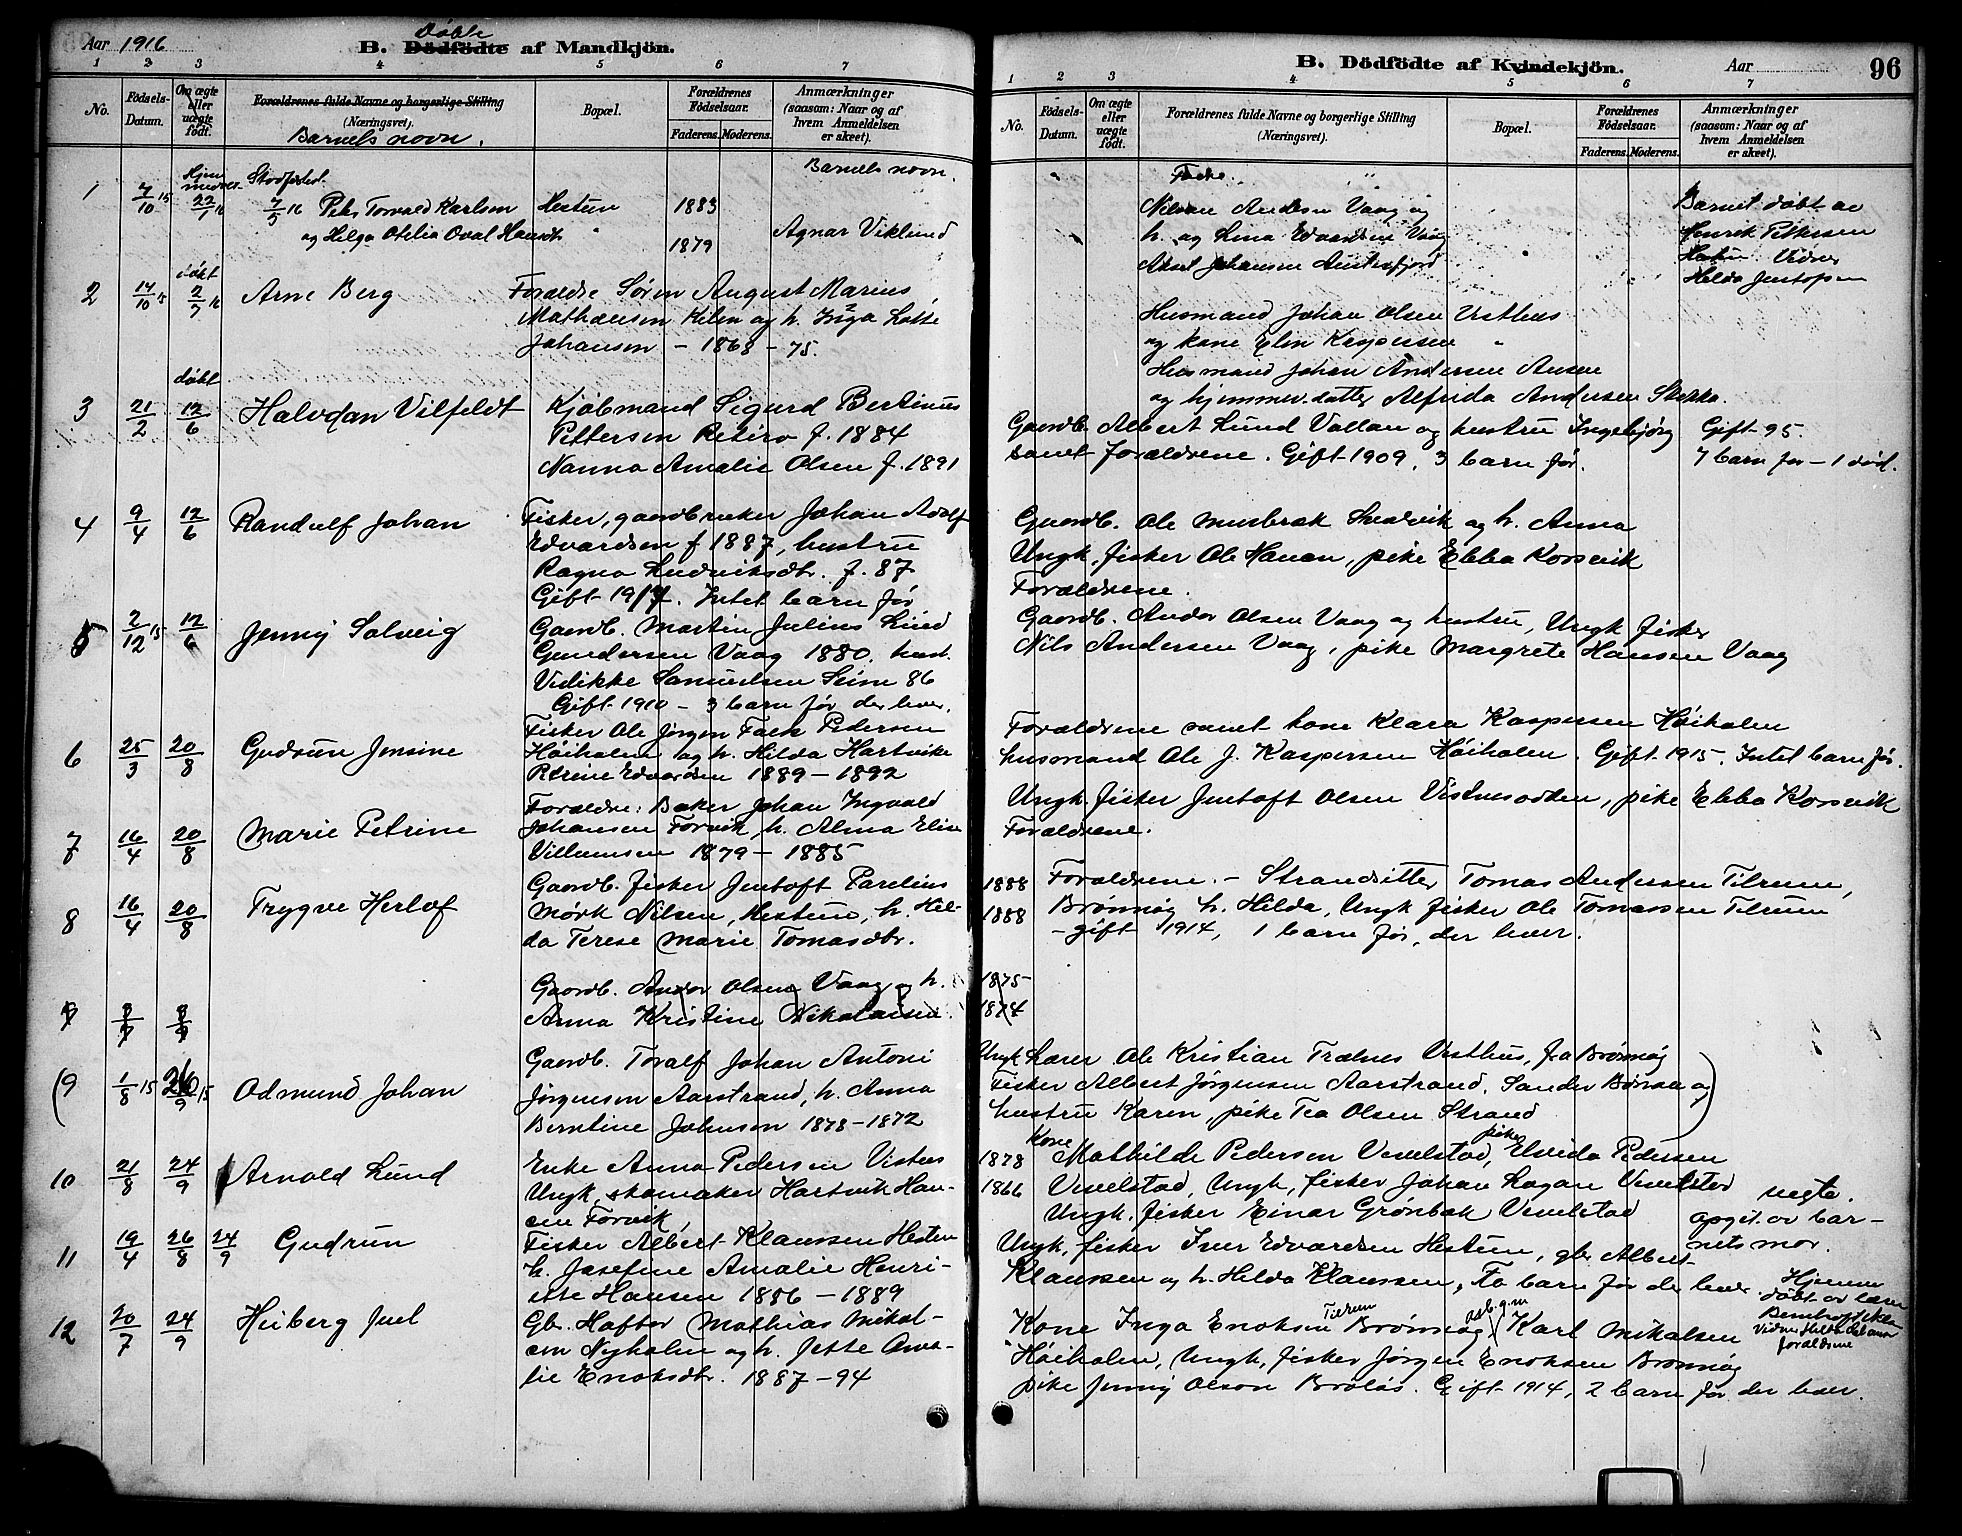 Aar 1916
Döbte
B. Dödfödte af Mandkjön.
1 2 3 4 5 6 7
No.
Födsels-Datum.
Om ægte eller uægte födt.
Forældrenes fulde Navne og borgerlige Stilling (Næringsvei).
Barnets navn.
Bopæl.
Forældrenes Födselsaar.
Faderens. Moderens.
Anmærkninger (saasom: Naar og af hvem Anmeldelsen er skeet).
1 7/10 15 22/1 16
7/5 16 Peter Torvald Karlsen Hestun 1883
og Helga Otelia Oval Hansdt. " 1879
Barnets navn.
Agnar Viklund
2 14/10 15 döbt 2/7 16 Arne Berg
Forældre Sören August Marius
Mathæusen Kilen og h. Inga Lotte
Johansen - 1868 - 75.
3 21/2 döbt 12/6 Halvdan Vilfeldt
Kjöbmand Sigurd Bertinus
Pettersen Retiro f. 1884
Nanna Amalie Olsen f. 1891
4 9/4 12/6 Randulf Johan
Fisker, gaardbruker Johan Adolf
Edvardsen f 1887, hustru
Ragna Ludviksdtr. f. 87
Gift 1914. Intet barn för
5 2/12 15 12/6 Jenny Solveig
Gaardb. Martin Julius Lund
Gundersen Vaag 1880. hust.
Vidikke Samuelsen Seim 86
Gift 1910 - 3 barn för der lever.
6 25/3 20/8 Gudrun Jensine
Fisker Ole Jörgen Faek Pedersen
Höiholm og h. Hilda Hartvike
Petrine Edvardsen 1889 - 1892
7 16/4 20/8 Marie Petrine
Forældre: Baker Johan Ingvald
Johansen Forvik, h. Alma Elise
Villumsen 1879 - 1885
8 16/4 20/8 Trygve Herlof
Gaardb. fisker Jentoft Parelius
Mörk Nilsen, Hestun, h. Hil-
da Terese Marie Tomasdtr.
Gaardb. Andor Olsen Vaag og h.
Anna Kristine Nikolaisen.
(9 1/8 15 26/9 15 Odmund Johan
Gaardb. Toralf Johan Antoni
Jörgensen Aarstrand, h. Anna
Berntine Johnsen 1878 - 1872
10 21/8 24/9 Arnold Lund
Enke Anna Pedersen Vistnes
Ungk. skomaker Hartvik Han-
sen Forvik,
11 19/4 26/8 24/9 Gudrun
Fisker Albert Klaussen Hestun
h. Josefine Amalie Henri-
ette Hansen 1886 - 1889
12 20/7 24/9 Heiberg Juel
Gbr. Haftor Mathias Mikal-
sen Nyholm og h. Jette Ama-
lie Enoksdtr. 1887 - 94
B. Dödfödte af Kvindekjön.
Aar
96
1 2 3 4 5 6 7
No.
Födsels-Datum.
Om ægte eller uægte födt.
Forældrenes fulde Navne og borgerlige Stilling (Næringsvei).
Bopæl.
Forældrenes Födselsaar.
Faderens. Moderens.
Anmærkninger (saasom: Naar og af hvem Anmeldelsen er skeet).
Andersen Vaag og
h. og Lina Edvardsen Vaag
Aksel Johansen Austerfjord
Barnet döbt av
Henrik Pettersen
Hestun. Vidner
Hilda Jentofsen
Husmand Johan Olsen Vesthus
og kone Elen Kaspersen "
Husmand Johan Andersen Ausen
og hjemmev. datter Alfrida Andersen Stokka.
Gaardb. Albert Lund Vallan og hustru Ingebjörg
samt Forældrene. Gift 1909, 3 barn för.
Gift 95.
7 barn för - 1 död.
Gaardb. Ole Musbræk og h. Anna
Ungk. fisker Ole Hanan, pike Ebba Korsvik
Forældrene.
Gaardb. Andor Olsen Vaag og hustru, Ungk fisker
Nils Andersen Vaag, pike Margrete Hansen Vaag
Forældrene samt kone Klara Kaspersen Höiholm
husmand Ole J. Kaspersen Höiholm. Gift 1915. Intet barn för.
Ungk. fisker Jentoft Olsen Vistnesodden, pike Ebba Korsvik
Forældrene.
1888 Forældrene. - Strandsitter Tomas Andersen Tilrum,
1888 Brönnöy h. Hilda, Ungk fisker Ole Tomassen Tilrum
- gift 1914, 1 barn för, der lever.
1875
1874
Ungk Lærer Ole Kristian Trælnes Vesthus, fra Brönnöy
Fisker Albert Jörgensen Aarstrand, Sander Bönaa og
hustru Karen, pike Tea Olsen Strand
1878 Kone Mathilde Pedersen Vevelstad, pike Elvida Pedersen
1866 Vevelstad, Ungk, fisker Johan Lagan Vevelstad
Ungk. fisker Einar Grönbæk Vevelstad
uegte.
opgit. av bar-
nets mor.
Ungk, fisker Iver Edvardsen Hestun, gbr Albert
Klaussen og h. Hilda Klaussen, To barn för der lever.
Hjemme
döbt av
Kone Inga Enoksen Tilrum Brönnöy Karl Mikalsen
Höiholm, Ungk, fisker Jörgen Enoksen Brönnöy
pike Jenny Olson Brölös. Gift 1914, 2 barn för der lever.
forældrene